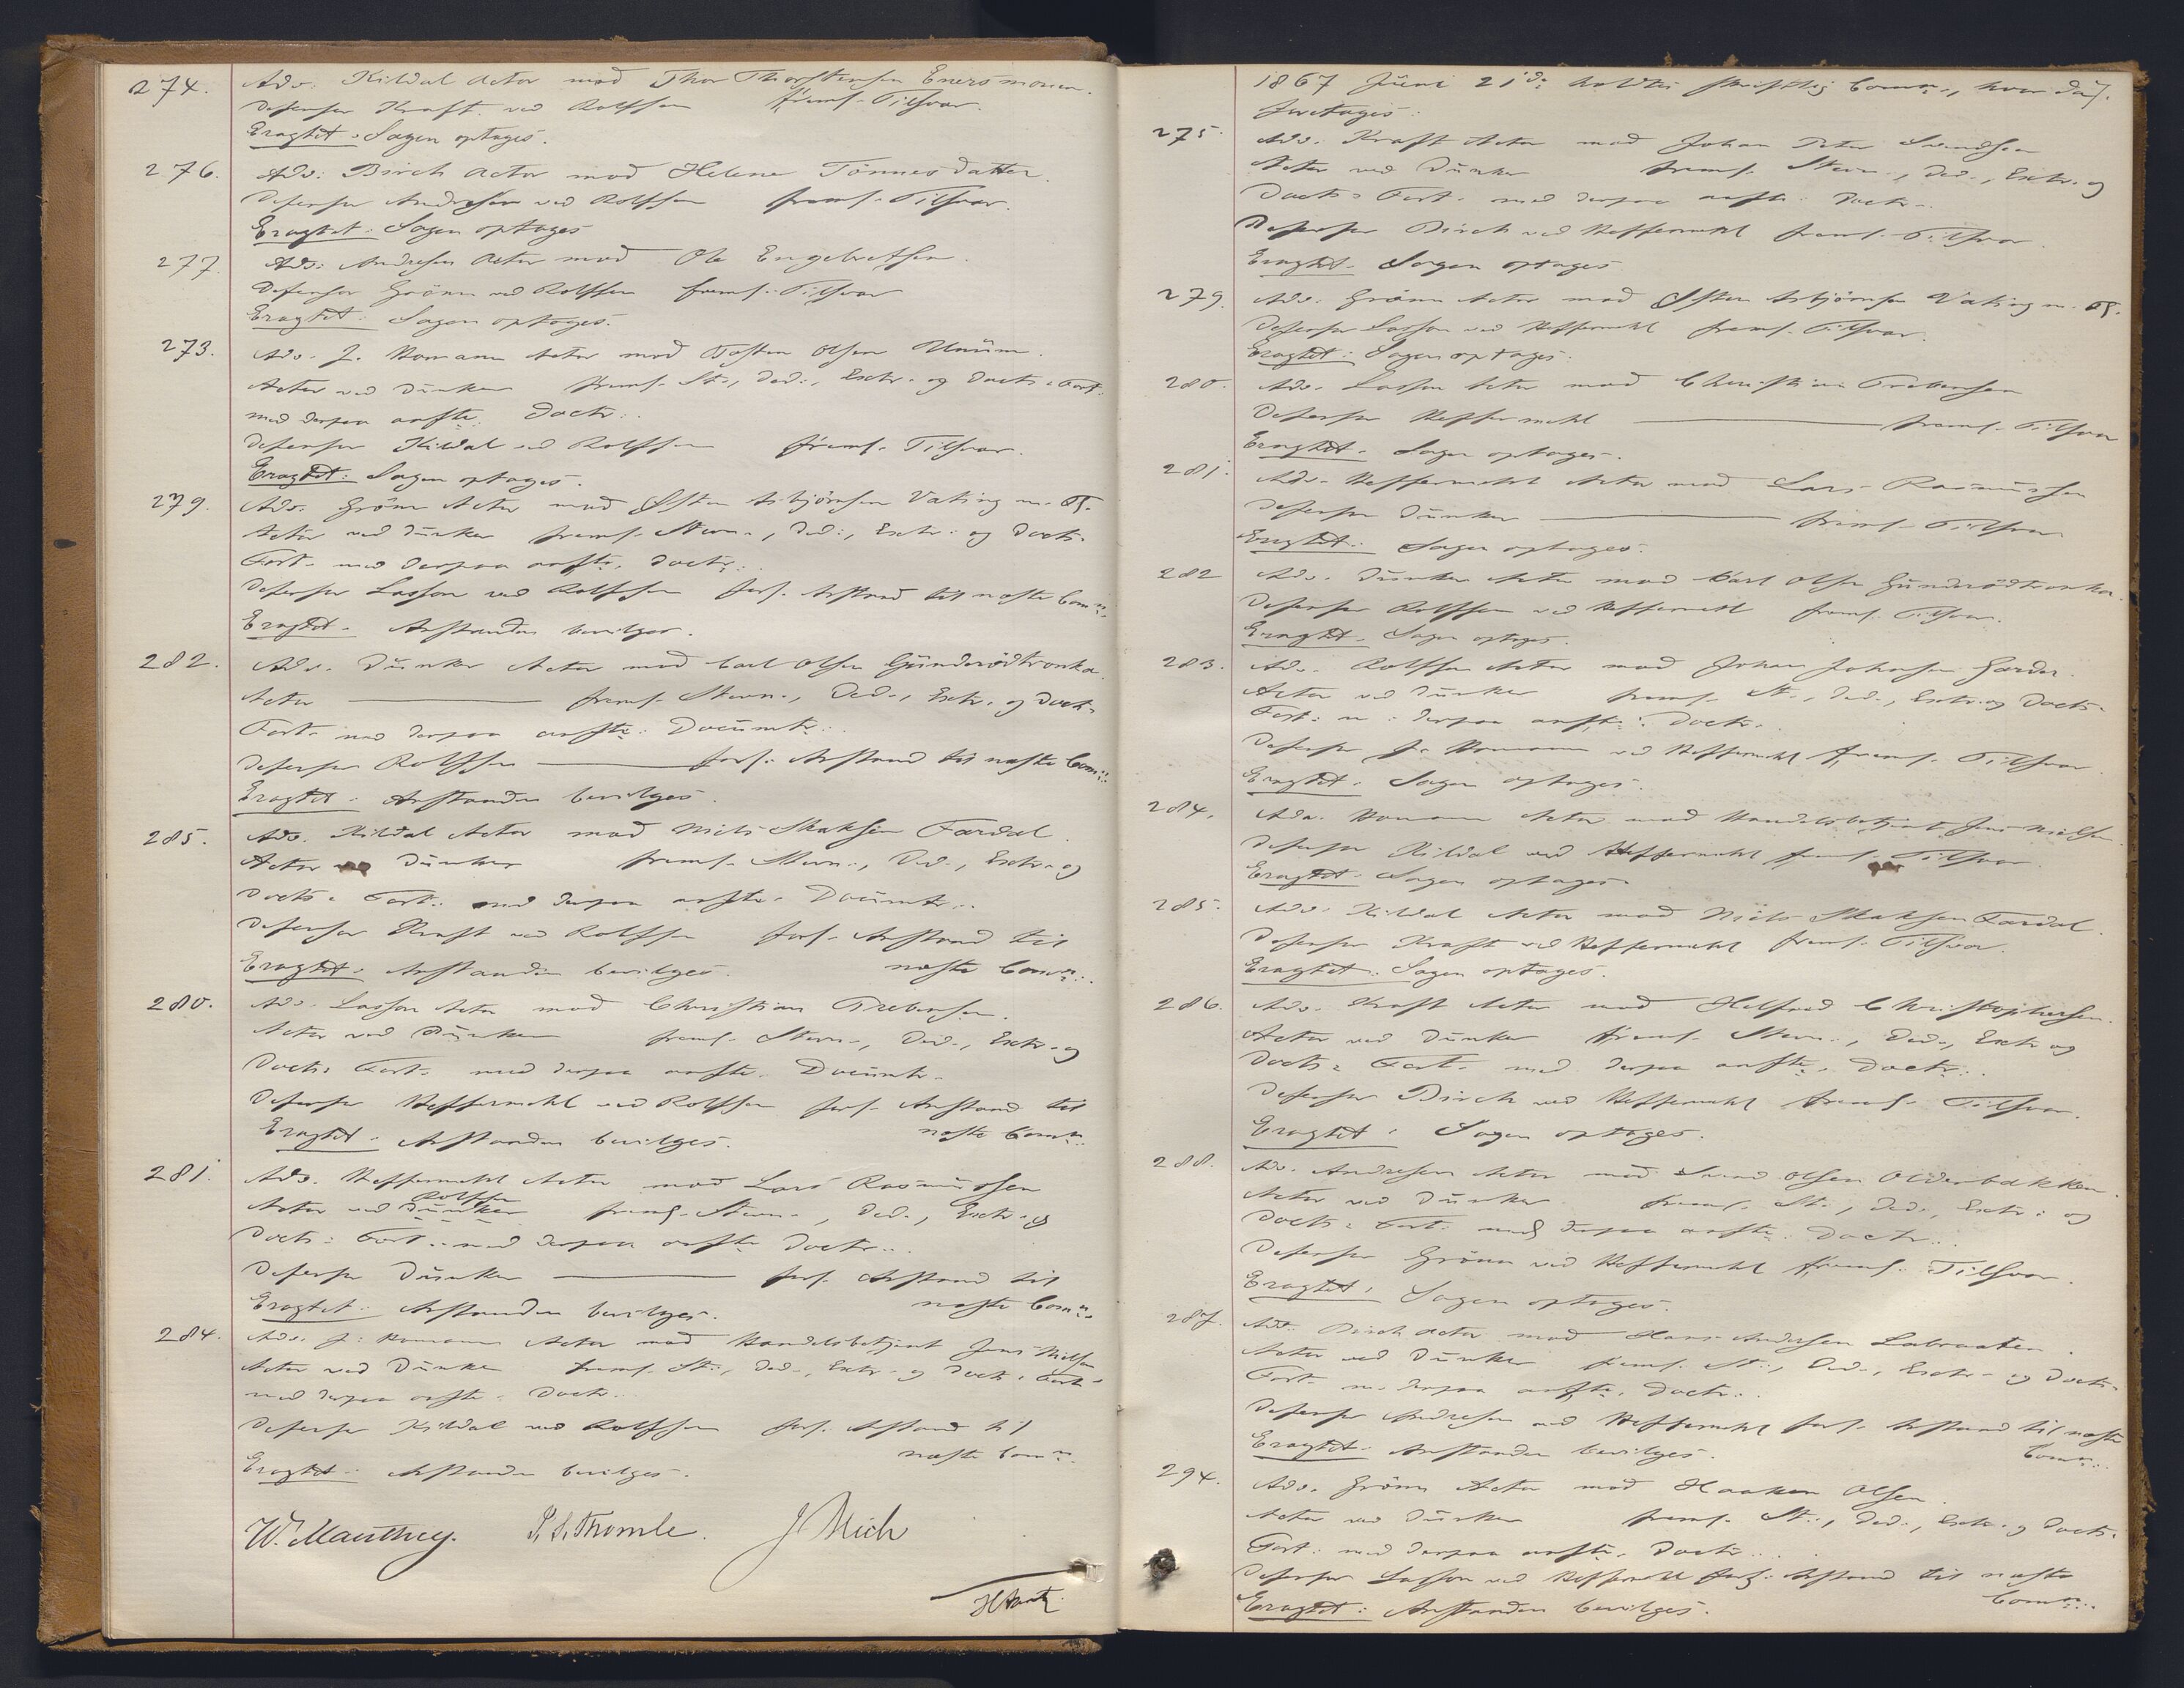 274. Adv. Kildal Actor mod Thor Thorstensen Enersmoen.
Defensor Kraft ved Rolfsen freml. Tilsvar.
Eragtet: Sagen optages.
276. Adv: Birch Actor mod Helene Tönnesdatter.
Defensor Andresen ved Rolfsen freml. Tilsvar.
Eragtet: Sagen optages
277. Adv: Andresen Actor mod Ole Engebretsen.
Defensor Grönn ved Rolfsen freml. Tilsvar
Eragtet: Sagen optages.
273. Adv. J. Homann Actor mod Tosten Olsen
Actor ved Dunker freml. St., Ded., Extr. og Docts. Fort.
med derpaa anfte. Doctr.
Defensor Kildal ved Rolfsen freml. Tilsvar.
Eragtet: Sagen optages.
279. Adv. Grönn Actor mod Østen Asbjörnsen Vating m. Fl.
Actor ved Dunker freml. Stevn., Ded., Extr. og Docts.
Fort. med derpaa anfte. Doctr.
Defensor Lasson ved Rolfsen forl. Anstand til næste Comn.
Eragtet. Anstanden bevilges.
282. Adv. Dunker Actor mod Carl Olsen Gunderödtronka.
Actor ——— freml. Stevn., Ded., Extr. og Docts.
Fort. med derpaa anfte. Documtr.
Defensor Rolfsen ——— forl. Anstand til næste Comn.
Eragtet: Anstanden bevilges.
285. Adv. Kildal Actor mod Niels Skaksen Fardal.
Actor ved Dunker freml. Stevn., Ded., Extr. og
Docts. Fort. med derpaa anfte. Documtr.
Defensor Kraft ved Rolfsen forl. Anstand til
Eragtet. Anstanden bevilges. næste Comn.
280. Adv. Lasson Actor mod Christian Trebensen.
Actor ved Dunker freml. Stevn., Ded., Extr. og
Docts. Fort. med derpaa anfte. Documtr.
Defensor Heffermehl ved Rolfsen forl. Anstand til
Eragtet. Anstanden bevilges. næste Comn.
281. Adv. Heffermehl Actor mod Lars Rasmussen
Rolfsen
Actor ved Dunker freml. Stevn., Ded., Extr. og
Docts. Fort. med derpaa anfte Doctr.
Defensor Dunker ——— forl. Anstand til
Eragtet. Anstanden bevilges. næste Comn.
284. Adv. J. Homann Actor mod Handelsbetjent Jens Nielsen
Actor ved Dunker freml. St., Ded., Extr. og Docts. Fort.
med derpaa anfte. Doctr.
Defensor Kildal ved Rolfsen forl. Anstand til
næste Comn.
Eragtet. Anstanden bevilges.
W. Manthey. P. S. Tromle. J Mich
1867 Juni 21de holdtes skriftlig Comn., hvor da f.
foretages:
275. Adv. Kraft Actor mod Johan Peter Svendsen
Actor ved Dunker freml. Stevn., Ded., Extr. og
Docts. Fort. med derpaa anfte. Doctr.
Defensor Birch ved Heffermehl freml. Tilsvar.
Eragtet. Sagen optages
279. Adv. Grönn Actor mod Østen Asbjörnsen Vating m. Fl.
Defensor Lasson ved Heffermehl freml. Tilsvar.
Eragtet: Sagen optages.
280. Adv. Lasson Actor mod Christian Trebensen
Defensor Heffermehl ——— freml. Tilsvar
Eragtet. Sagen optages.
281. Adv. Heffermehl Actor mod Lars Rasmussen
Defensor Dunker ——— freml. Tilsvar
Eragtet: Sagen optages.
282 Adv. Dunker Actor mod Carl Olsen Gunderödtronka.
Defensor Rolfsen ved Heffermehl freml. Tilsvar.
Eragtet. Sagen optages.
283. Adv. Rolfsen Actor mod Johan Johnsen Garder.
Actor ved Dunker freml. St., Ded., Extr. og Docts.
Fort. m. derpaa anfte. Doctr.
Defensor J. Homann ved Heffermehl freml. Tilsvar.
Eragtet. Sagen optages.
284. Adv. Homann Actor mod Handelsbetjent Jens Nielsen.
Defensor Kildal ved Heffermehl freml. Tilsvar.
Eragtet. Sagen optages.
285. Adv. Kildal Actor mod Niels Skaksen Fardal.
Defensor Kraft ved Heffermehl freml. Tilsvar.
Eragtet. Sagen optages.
286. Adv. Kraft Actor mod Helfred Christophersen.
Actor ved Dunker freml. Stevn., Ded., Extr. og
Docts. Fort. med derpaa anfte. Doctr.
Defensor Birch ved Heffermehl freml. Tilsvar.
Eragtet. Sagen optages.
288. Adv. Andresen Actor mod Svend Olsen Olderbakken.
Actor ved Dunker freml. St., Ded., Extr. og
Docts. Fort. med derpaa anfte. Doctr.
Defensor Grönn ved Heffermehl freml. Tilsvar.
Eragtet. Sagen optages.
287. Adv. Birch Actor mod Hans Andersen Labraaten.
Actor ved Dunker freml. St., Ded., Extr. og Docts.
Fort. m. derpaa anfte. Doctr.
Defensor Andresen ved Heffermehl forl. Anstand til næste
Eragtet. Anstanden bevilges. Comn.
294. Adv. Grönn Actor mod Haaken Olsen.
Actor ved Dunker freml. St., Ded., Extr. og Docts.
Fort. med derpaa anfte. Doctr.
Defensor Lasson ved Heffermehl forl. Anstand til næste
Eragtet: Anstanden bevilges. Comn.